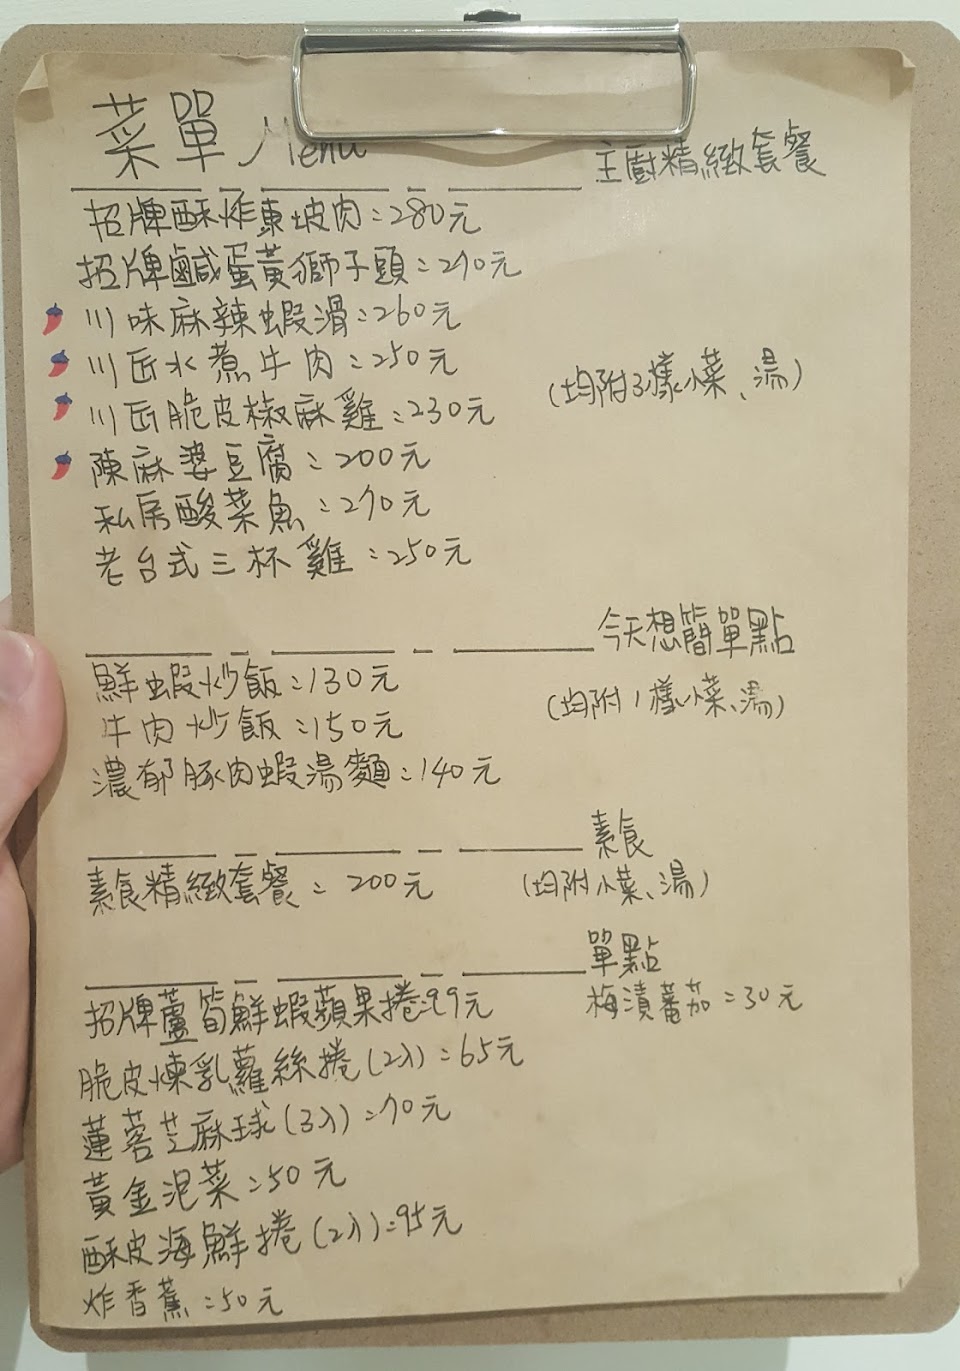 菜單 Menu
主廚精緻套餐
招牌酥炸東坡肉=280元
招牌鹹蛋黃獅子頭=270元
川味麻辣蝦滑=260元
川匠水煮牛肉=250元
(均附3樣小菜、湯)
川匠脆皮椒麻雞=230元
陳麻婆豆腐=200元
私房酸菜魚=270元
老台式三杯雞=250元
今天想簡單點
鮮蝦炒飯=130元
(均附1樣小菜、湯)
牛肉炒飯=150元
濃郁豚肉蝦湯麵=140元
素食
素食精緻套餐=200元
(均附小菜、湯)
單點
招牌蘆筍鮮蝦蘋果捲=99元
梅漬蕃茄=30元
脆皮煉乳蘿絲捲(2入)=65元
蓮蓉芝麻球(3入)=70元
黃金泡菜=50元
酥皮海鮮捲(2入)=95元
炸香蕉=50元